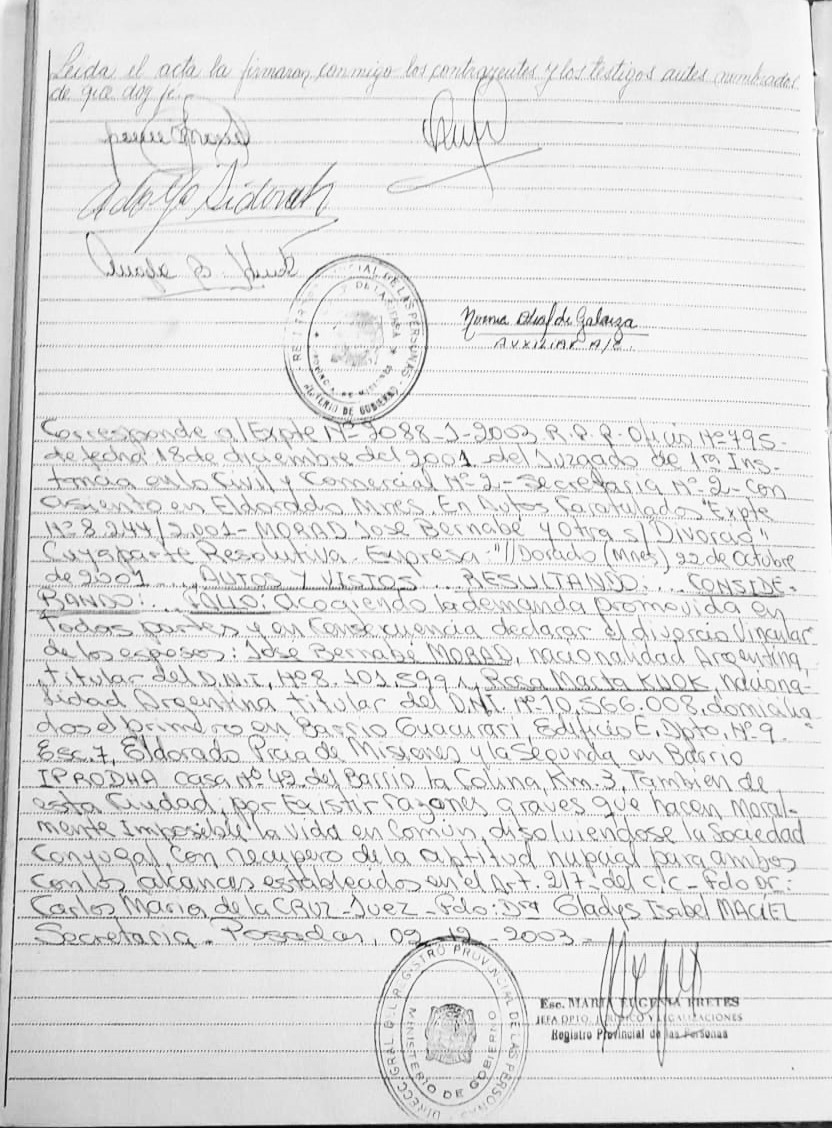 Leida el acta la firmaron conmigo los contrayentes y los testigos antes nombrados
de que doy fe.
Adolfo Sidorak
Norma de Galarza
AUXILIAR A/C.
REGISTRO PROVINCIAL DE LAS PERSONAS
MINISTERIO DE GOBIERNO
Corresponde a/Expte Nº 3088-J-2003 R.P.P. Oficio Nº 795-
de fecha 18 de diciembre del 2001 del Juzgado de 1ra Ins-
tancia en lo Civil y Comercial Nº 2 - Secretaria Nº 2 - Con
asiento en Eldorado Mnes. En Autos Caratulados "Expte
Nº 8.244/2.001 - MORAD José Bernabé y Otra s/Divorcio"
Cuya parte Resolutiva - Expresa - "//Dorado (Mnes) 22 de Octubre
de 2001 ... AUTOS Y VISTOS ... RESULTANDO: ... CONSIDE-
RANDO: ... FALLO: acogiendo la demanda promovida en
todas partes y en Consecuencia declarar el divorcio Vincular
de los esposos: José Bernabé MORAD, nacionalidad Argentina,
titular del D.N.I. Nº 8.101.599 y Rosa Marta KUOK, Naciona-
lidad Argentina titular del D.N.I. Nº 10.566.008, domicilia
dos el primero en Barrio Guacurari, Edificio E, Dpto, Nº 9.
Esc. 7, Eldorado Pcia de Misiones y la Segunda en Barrio
IPRODHA Casa Nº 49 del Barrio la Colina, Km. 3, Tambien de
esta Ciudad, por Existir razones graves que hacen Moral-
mente Imposible la vida en Común, disolviendose la Sociedad
Conyugal, Con recupero de la aptitud nupcial para ambos
con los alcances establecidos en el Art. 217 - del C.C - Fdo DC:
Carlos Maria de la CRUZ - Juez - Fdo: Dra Gladys Isabel MACIEL
Secretaria. Posadas, 09-12-2003 -
DIRECC. GRAL. DEL REGISTRO PROVINCIAL DE LAS PERSONAS
MINISTERIO DE GOBIERNO
Esc. MARIA EUGENIA BRETES
JEFA DPTO. JURIDICO Y LEGALIZACIONES
Registro Provincial de las Personas